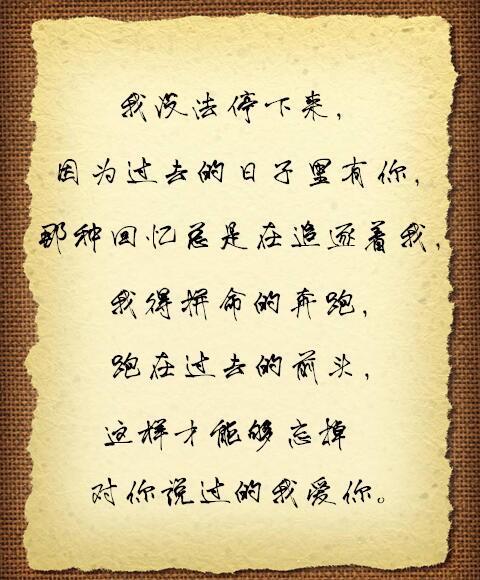 我没法停下来，
因为过去的日子里有你，
那种回忆总是在追逐着我，
我得拼命的奔跑，
跑在过去的前头，
这样才能够忘掉
对你说过的我爱你。